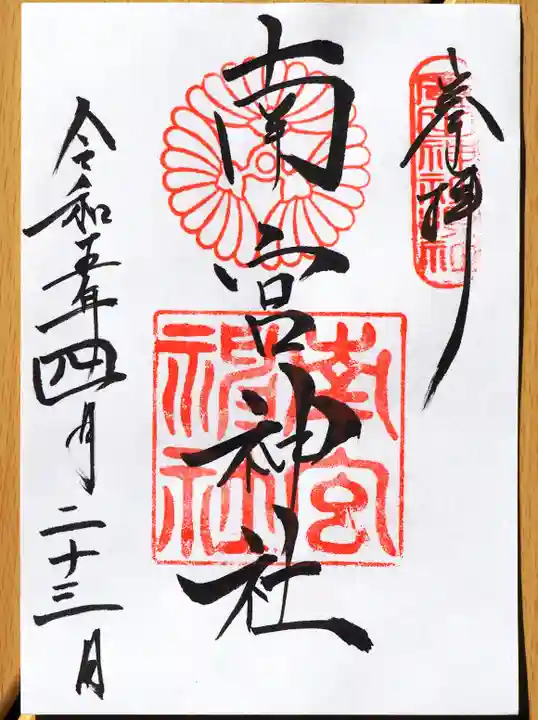 奉拝
南宮神社
南宮神社
令和五年四月二十三日